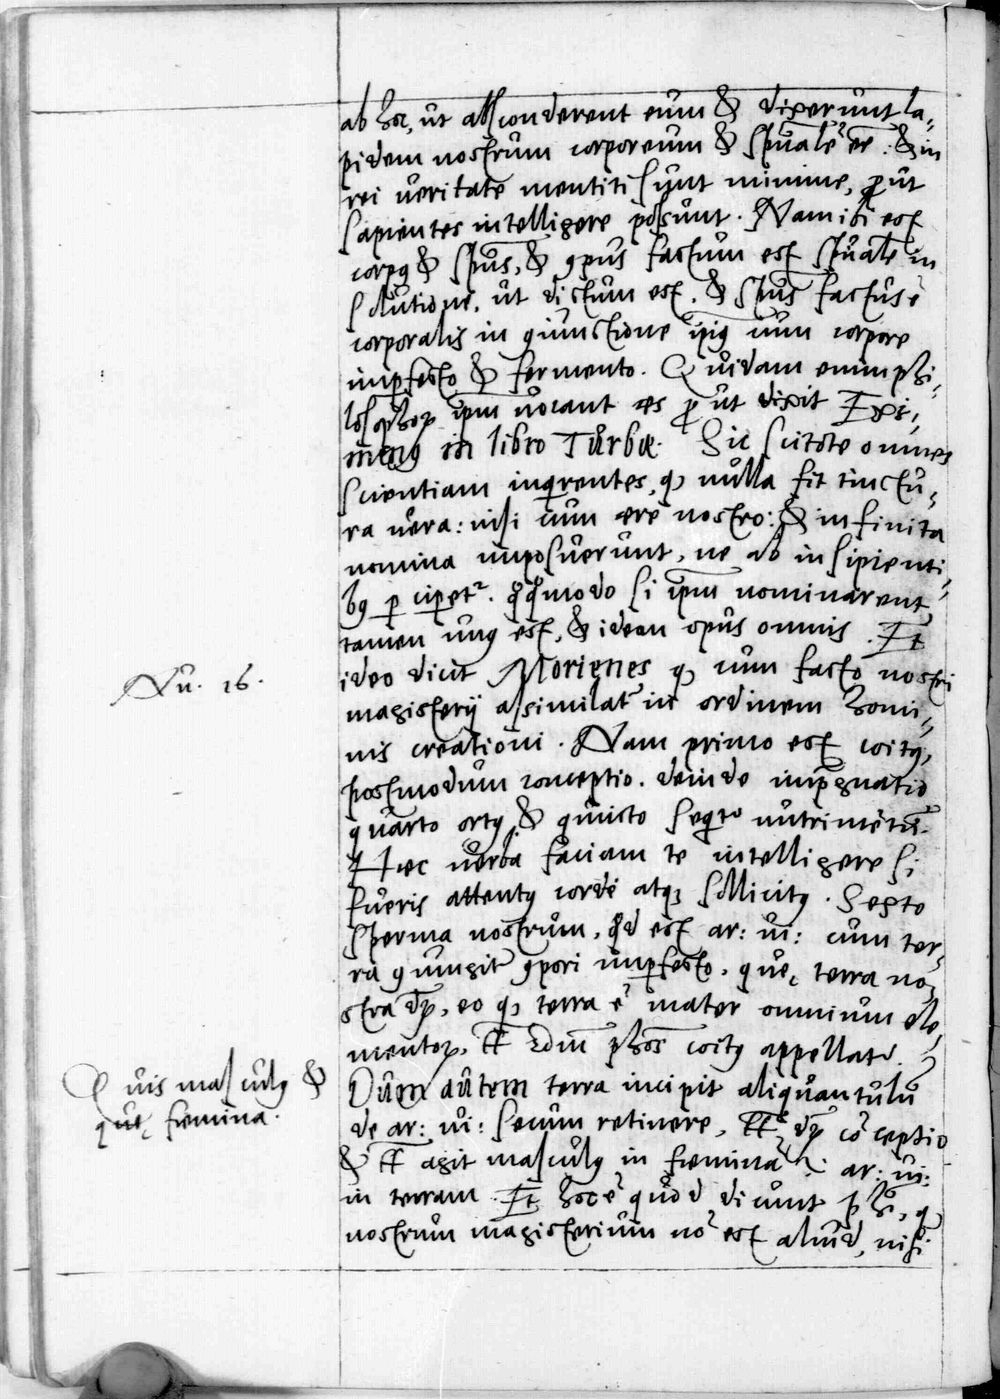 ab hoc, ut absconderent eum & dixerunt la-
pidem nostrum corporeum & spũale ẽe: & in
rei veritate mentiti sunt minime, ꝓut
sapientes intelligere possunt. Nam ibi est
corpꝰ & spũs, & ꝯpus factum est spũale in
solutione, ut dictum est, & spũs factus ẽ
corporalis in ꝯiunctione ip̃iꝰ cum corpore
imꝑfecto & fermento. Quidam enim phi-
losophoꝝ ip̃m vocant æs ꝓut dixit Exi-
menꝰ in libro Turbæ. Sic scitote omnes
scientiam inq̃rentes, qꝫ nulla fit tinctu-
ra vera: nisi cum ære nostro: & infinita
nomina imposuerunt, ne ab insipienti-
bꝰ ꝑcipet᷑. q̃q̃modo si ip̃m nominarent
tamen unꝰ est, & idem opus omnis. Et
ideo dicit Morienes qꝫ cum facto nostri
magisterij assimilat᷑ in ordinem homi-
nis creationi. Nam primo est coitꝰ,
postmodum conceptio. deinde imp̃gnatio
quarto ortꝰ, & quinto seqt᷑ nutrimẽtũ.
Hæc verba faciam te intelligere si
fueris attentꝰ corde atqꝫ sollicitꝰ. Sexto
sperma nostrum, qd̃ est ar: vi: cum ter-
ra ꝯiungit᷑ ꝯpori imꝑfecto, quę terra no-
stra dꝯ, eo qꝫ terra ẽ mater omnium ele-
mentoꝝ, phõs coitꝰ appellat᷑.
Dum autem terra incipit aliquantulũ
de ar: vi: secum retinere, cõceptio
& agit masculꝰ in fœminã ar: vi:
in terram. Et hoc ẽ quod dicunt phĩ, qꝫ
nostrum magisterium nõ est aliud, nisi
Nu. 16.
Quis masculꝰ &
quę fœmina.